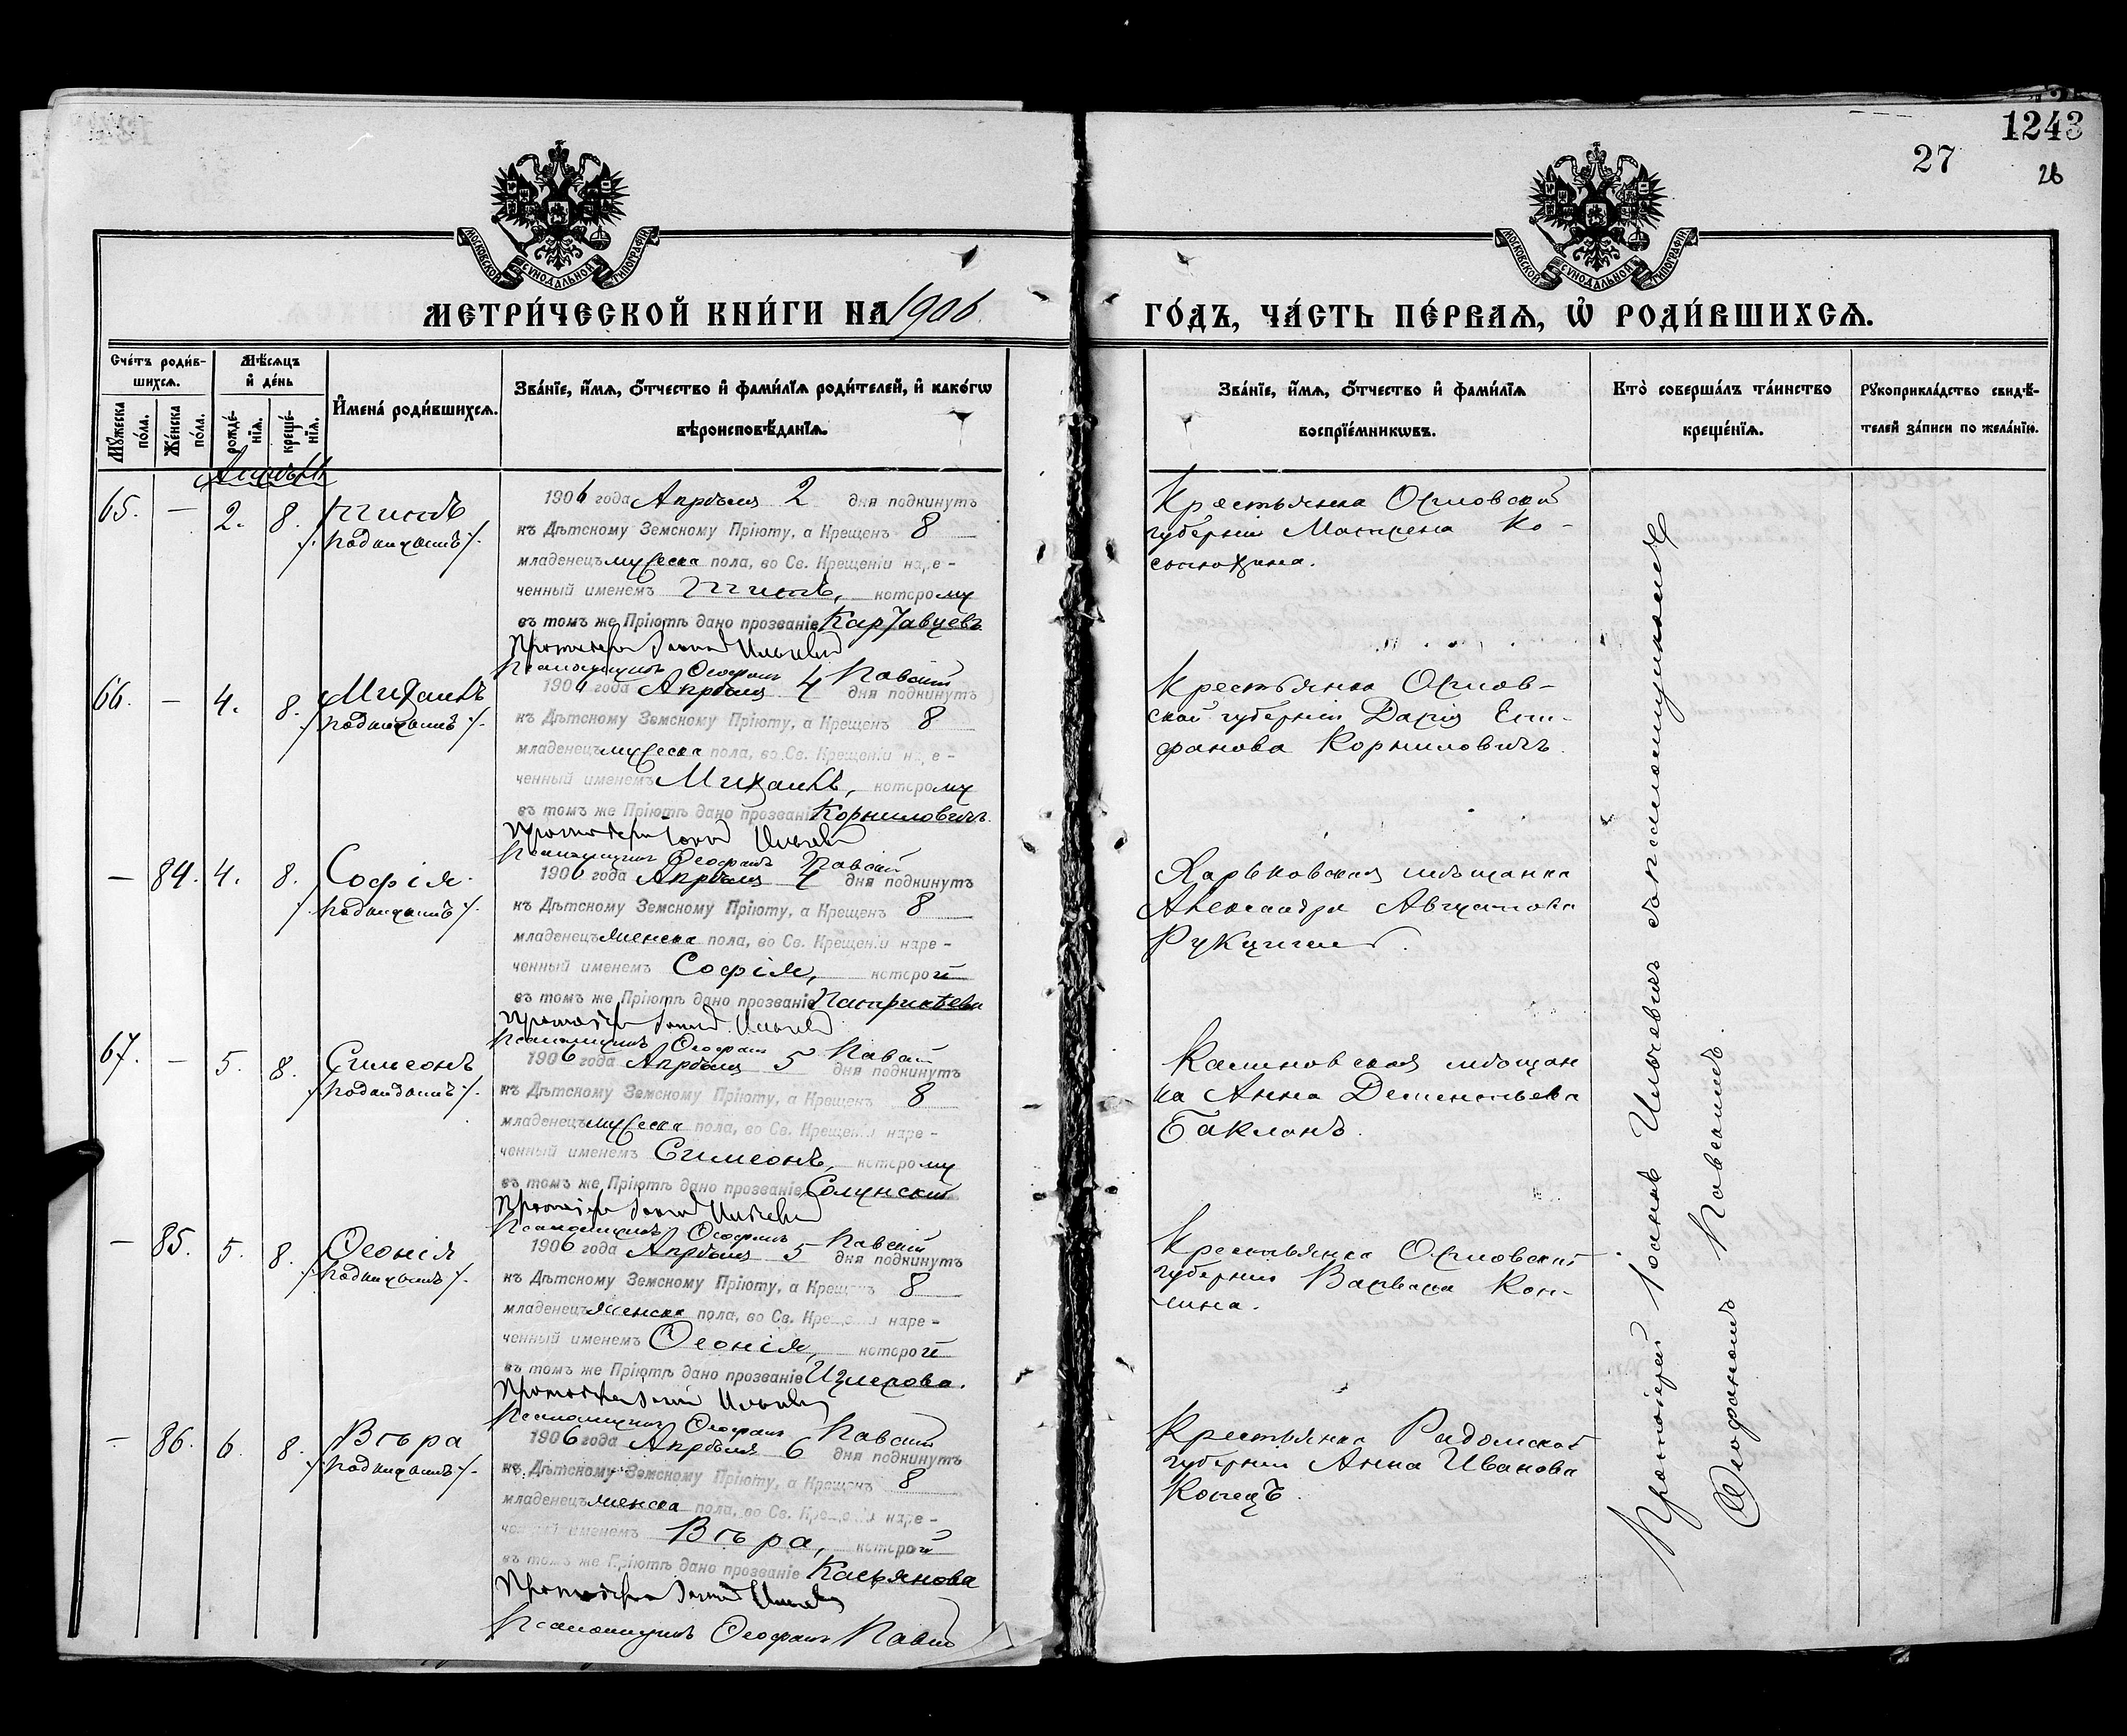 1243
27
26
МОСКОВСКОЙ СУНОДАЛЬНОЙ ТИПОГРАФІИ
МОСКОВСКОЙ СУНОДАЛЬНОЙ ТИПОГРАФІИ
МЕТРИ́ЧЕСКОЙ КНИ́ГИ НА 1906
ГО́ДЪ, ЧА́СТЬ ПЕ́РВАѦ, Ѡ҆ РОДИ́ВШИХСѦ.
Сче́тъ роди́в-
шихсѧ.
Мѣ́сѧцъ
и҆ де́нь
И҆мена́ роди́вшихсѧ.
Зва́нїе, и҆́мѧ, ѻ҆́тчество и҆ фами́лїѧ роди́телей, и҆ како́гѡ
вѣроисповѣ́данїѧ.
Мꙋ́жеска по́ла.
Же́нска по́ла.
рожде́-
нїѧ.
креще́-
нїѧ.
Зва́нїе, и҆́мѧ, ѻ҆́тчество и҆ фами́лїѧ
воспрїе́мникѡвъ.
Кто̀ соверша́лъ та́инство
креще́нїѧ.
Рꙋкоприкла́дство свидѣ́-
телей за́писи по жела́нїю.
Апрѣль
65. — 2. 8. Титъ
/подкидышъ/.
1906 года Апрѣля 2 дня подкинутъ
къ Дѣтскому Земскому Пріюту, а Крещенъ 8
младенецъ мужеска пола, во Св. Крещеніи наре-
ченный именемъ Титъ, которому
въ томъ же Пріютѣ дано прозваніе Картавцевъ
Протоіерей Іоаннъ Ильичевъ
Псаломщикъ Ѳеофанъ Павскій
Крестьянка Орловской
губерніи Матрена Ко-
66. — 4. 8. Михаилъ
/подкидышъ/.
1906 года Апрѣля 4 дня подкинутъ
къ Дѣтскому Земскому Пріюту, а Крещенъ 8
младенецъ мужеска пола, во Св. Крещеніи наре-
ченный именемъ Михаилъ, которому
въ томъ же Пріютѣ дано прозваніе Корниловичъ
Протоіерей Іоаннъ Ильичевъ
Псаломщикъ Ѳеофанъ Павскій
Крестьянка Орлов-
ской губерніи Дарія Епи-
фанова Корниловичъ.
— 84. 4. 8. Софія
/подкидышъ/.
1906 года Апрѣля 4 дня подкинутъ
къ Дѣтскому Земскому Пріюту, а Крещенъ 8
младенецъ женска пола, во Св. Крещеніи наре-
ченный именемъ Софія, которой
въ томъ же Пріютѣ дано прозваніе Патрикѣева
Протоіерей Іоаннъ Ильичевъ
Псаломщикъ Ѳеофанъ Павскій
Харьковская мѣщанка
Александра Августова
67. — 5. 8. Симеонъ
/подкидышъ/.
1906 года Апрѣля 5 дня подкинутъ
къ Дѣтскому Земскому Пріюту, а Крещенъ 8
младенецъ мужеска пола, во Св. Крещеніи наре-
ченный именемъ Симеонъ, которому
въ томъ же Пріютѣ дано прозваніе Солунскій
Протоіерей Іоаннъ Ильичевъ
Псаломщикъ Ѳеофанъ Павскій
мѣщан
ка Анна Дементьева
Бакланъ.
— 85. 5. 8. Ѳеонія
/подкидышъ/.
1906 года Апрѣля 5 дня подкинутъ
къ Дѣтскому Земскому Пріюту, а Крещенъ 8
младенецъ женска пола, во Св. Крещеніи наре-
ченный именемъ Ѳеонія, которой
въ томъ же Пріютѣ дано прозваніе
Протоіерей Іоаннъ Ильичевъ
Псаломщикъ Ѳеофанъ Павскій
Крестьянка Орловской
губерніи Варвара
— 86. 6. 8. Вѣра
/подкидышъ/.
1906 года Апрѣля 6 дня подкинутъ
къ Дѣтскому Земскому Пріюту, а Крещенъ 8
младенецъ женска пола, во Св. Крещеніи наре-
ченный именемъ Вѣра, которой
въ томъ же Пріютѣ дано прозваніе Касьянова
Протоіерей Іоаннъ Ильичевъ
Псаломщикъ Ѳеофанъ Павскій
Крестьянка Радомской
губерніи Анна Иванова
Копецъ.
Протоіерей Іоаннъ Ильичевъ съ псаломщикомъ
Ѳеофаномъ Павскимъ.